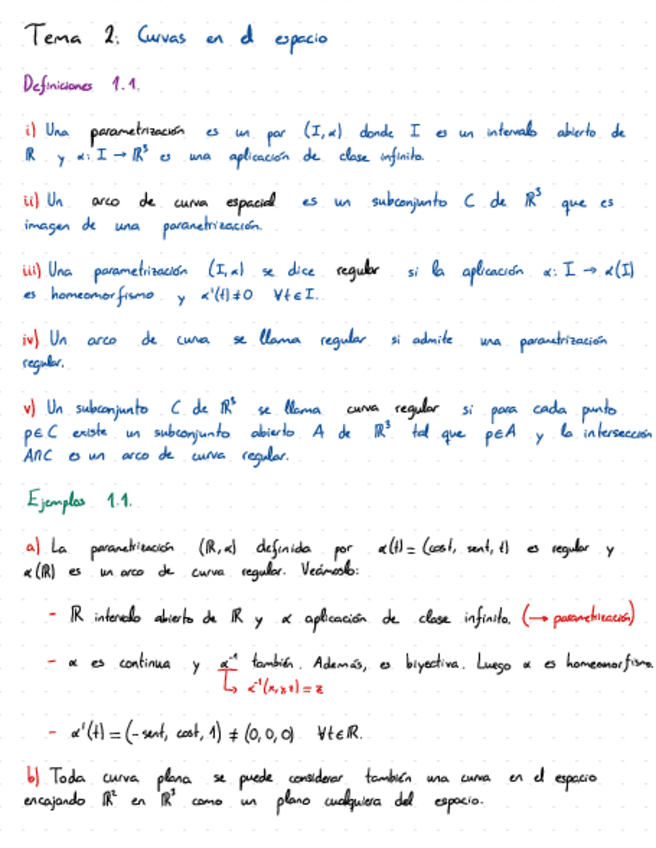 Tema 2: Curvas en el espacio
Definiciones 1.1.
i) Una parametrización es un par (I, α) donde I es un intervalo abierto de
ℝ y α: I → ℝ³ es una aplicación de clase infinito.
ii) Un arco de curva espacial es un subconjunto C de ℝ³ que es
imagen de una parametrización.
iii) Una parametrización (I, α) se dice regular si la aplicación α: I → α(I)
es homeomorfismo y α'(t)≠0 ∀t∈I.
iv) Un arco de curva se llama regular si admite una parametrización
regular.
v) Un subconjunto C de ℝ³ se llama curva regular si para cada punto
p∈C existe un subconjunto abierto A de ℝ³ tal que p∈A y la intersección
A∩C es un arco de curva regular.
Ejemplos 1.1.
a) La parametrización (ℝ, α) definida por α(t) = (cost, sent, t) es regular y
α(ℝ) es un arco de curva regular. Veámoslo:
- ℝ intervalo abierto de ℝ y α aplicación de clase infinito. (→ parametrización)
- α es continua y α⁻¹ también. Además, es biyectiva. Luego α es homeomorfismo.
↳ α⁻¹(x,y,z) = z
- α'(t) = (-sent, cost, 1) ≠ (0,0,0) ∀t∈ℝ.
b) Toda curva plana se puede considerar también una curva en el espacio
encajando ℝ² en ℝ³ como un plano cualquiera del espacio.